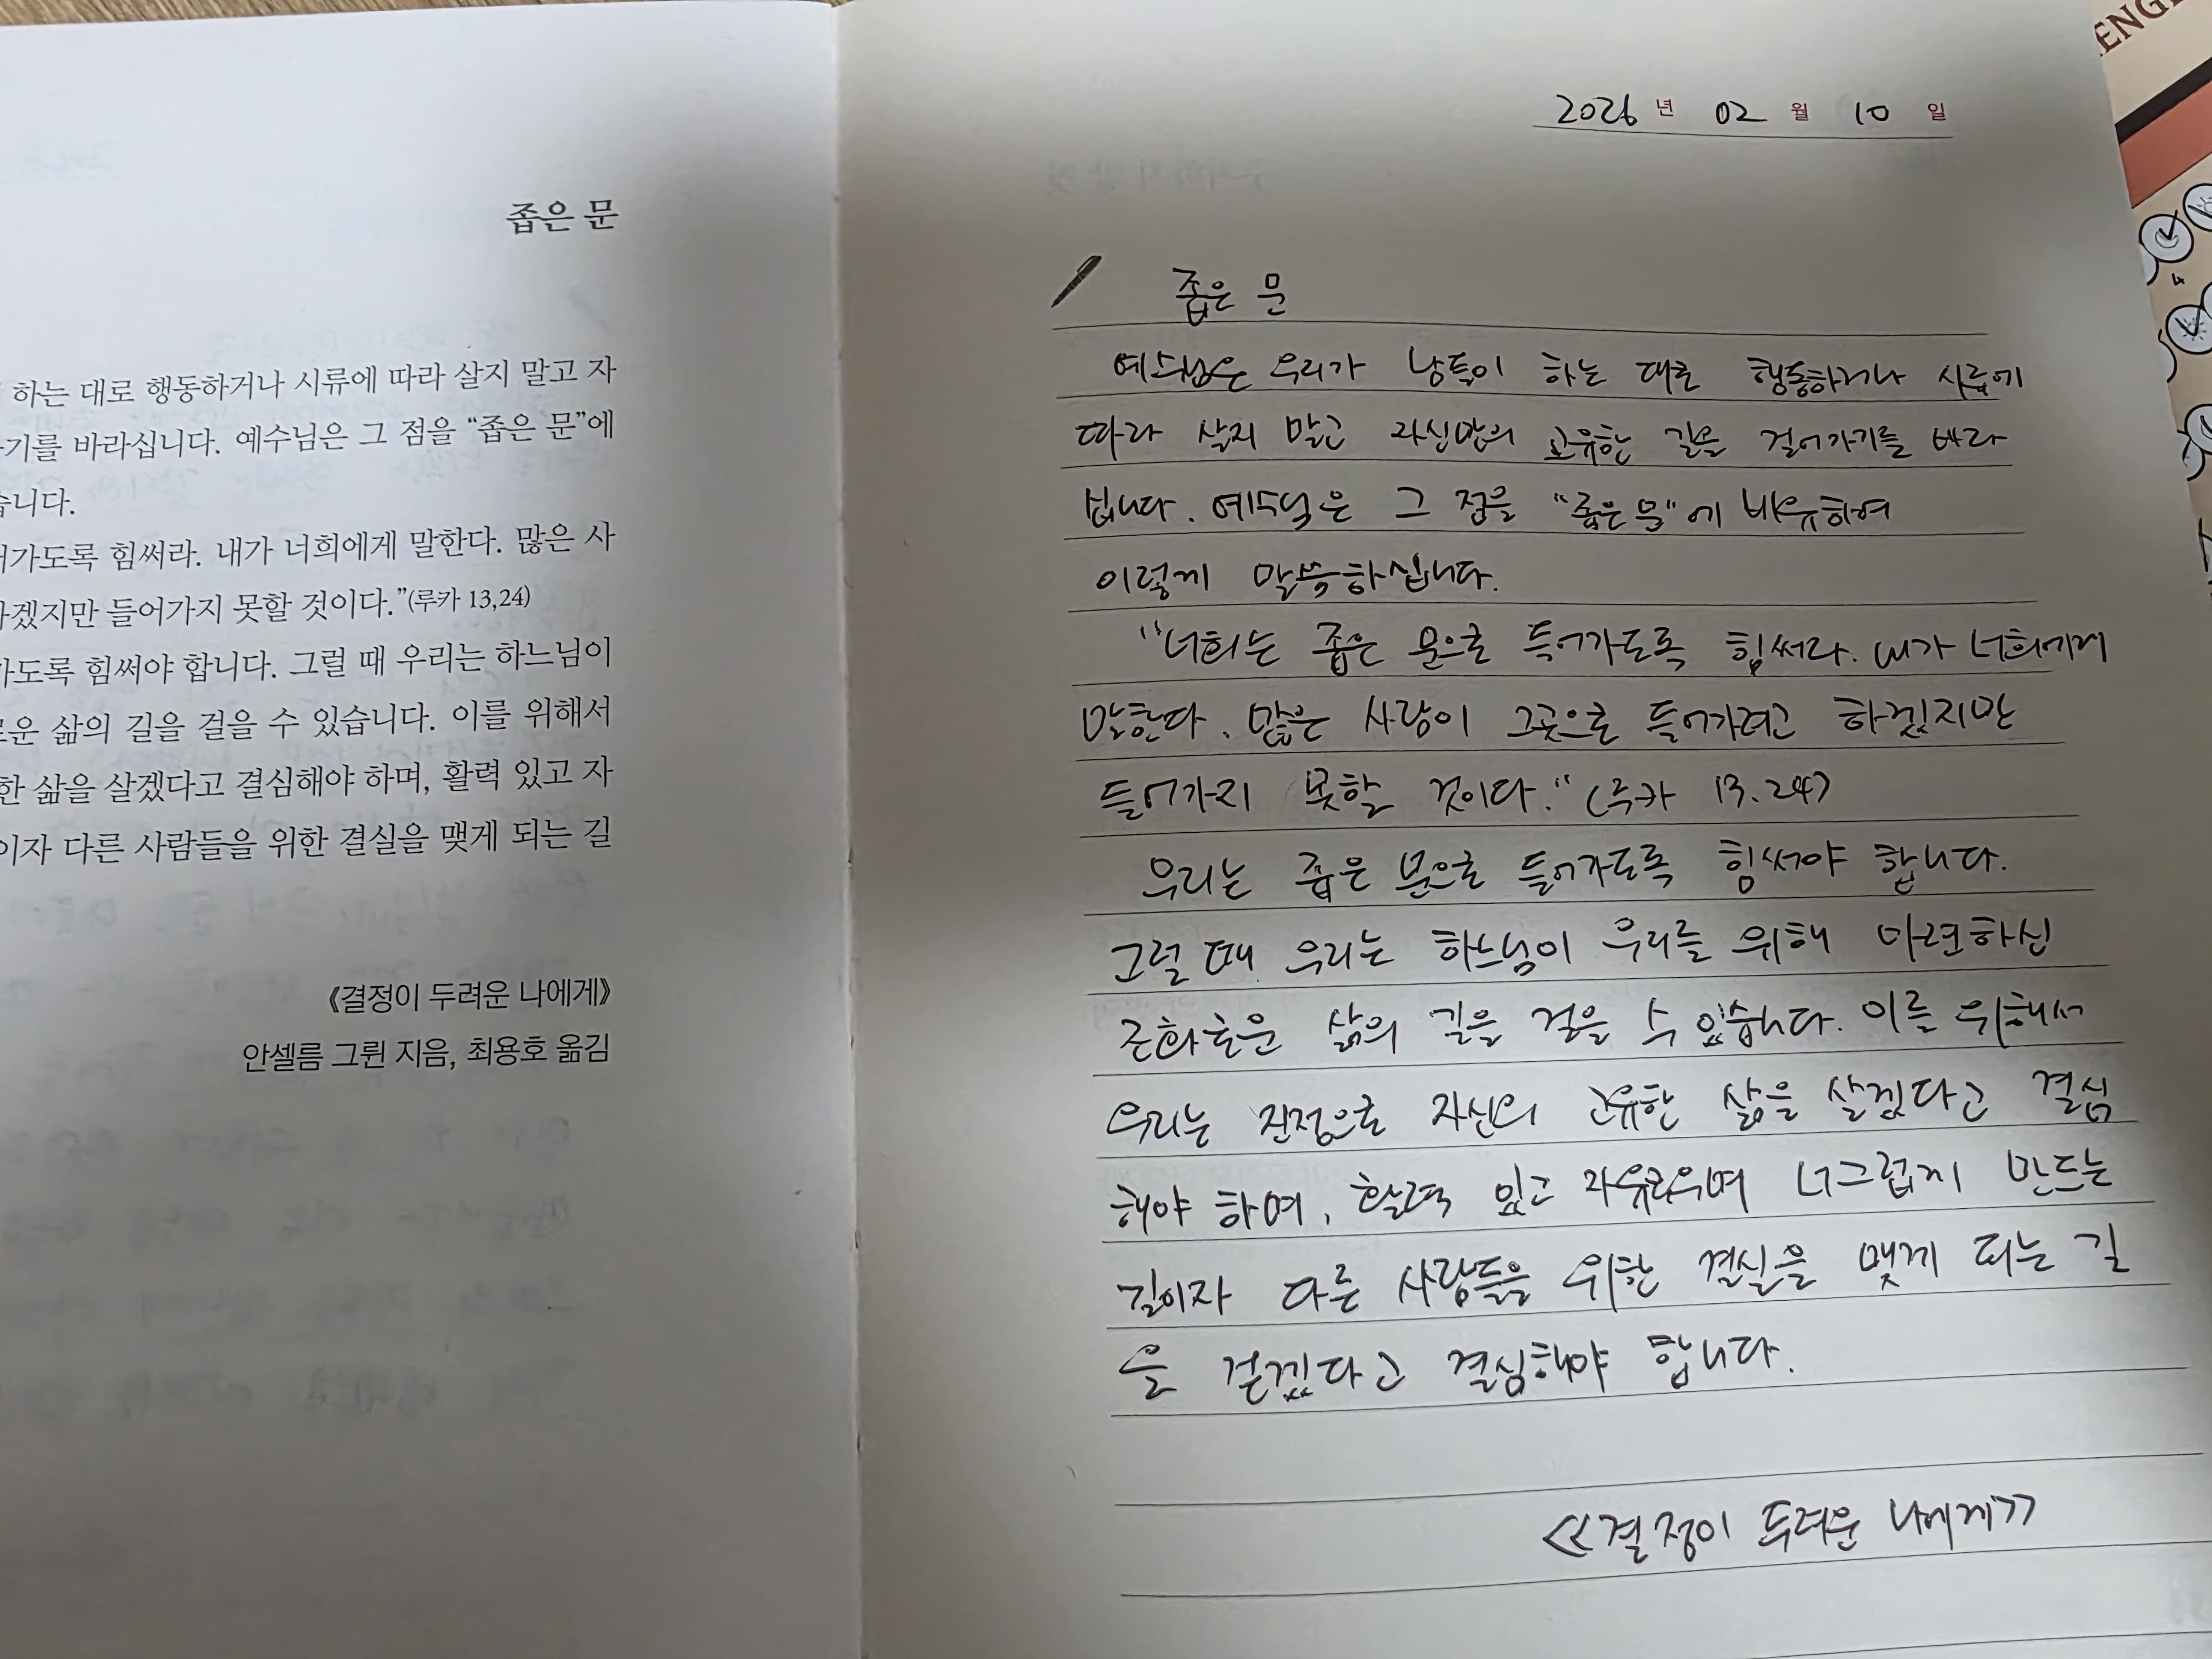 좁은 문
하는 대로 행동하거나 시류에 따라 살지 말고 자
기를 바라십니다. 예수님은 그 점을 “좁은 문”에
습니다.
가도록 힘써라. 내가 너희에게 말한다. 많은 사
겠지만 들어가지 못할 것이다.”(루카 13,24)
가도록 힘써야 합니다. 그럴 때 우리는 하느님이
운 삶의 길을 걸을 수 있습니다. 이를 위해서
한 삶을 살겠다고 결심해야 하며, 활력 있고 자
이자 다른 사람들을 위한 결실을 맺게 되는 길
《결정이 두려운 나에게》
안셀름 그륀 지음, 최용호 옮김
2026 년 02 월 10 일
좁은 문
예수님은 우리가 남들이 하는 대로 행동하거나 시류에
따라 살지 말고 자신만의 고유한 길을 걸어가기를 바라
십니다. 예수님은 그 점을 “좁은 문”에 비유하여
이렇게 말씀하십니다.
“너희는 좁은 문으로 들어가도록 힘써라. 내가 너희에게
말한다. 많은 사람이 그곳으로 들어가려고 하겠지만
들어가지 못할 것이다.” (루카 13.24)
우리는 좁은 문으로 들어가도록 힘써야 합니다.
그럴 때 우리는 하느님이 우리를 위해 마련하신
조화로운 삶의 길을 걸을 수 있습니다. 이를 위해서
우리는 진정으로 자신의 고유한 삶을 살겠다고 결심
해야 하며, 활력 있고 자유로우며 너그럽게 만드는
길이자 다른 사람들을 위한 결실을 맺게 되는 길
을 걷겠다고 결심해야 합니다.
<<결정이 두려운 나에게>>